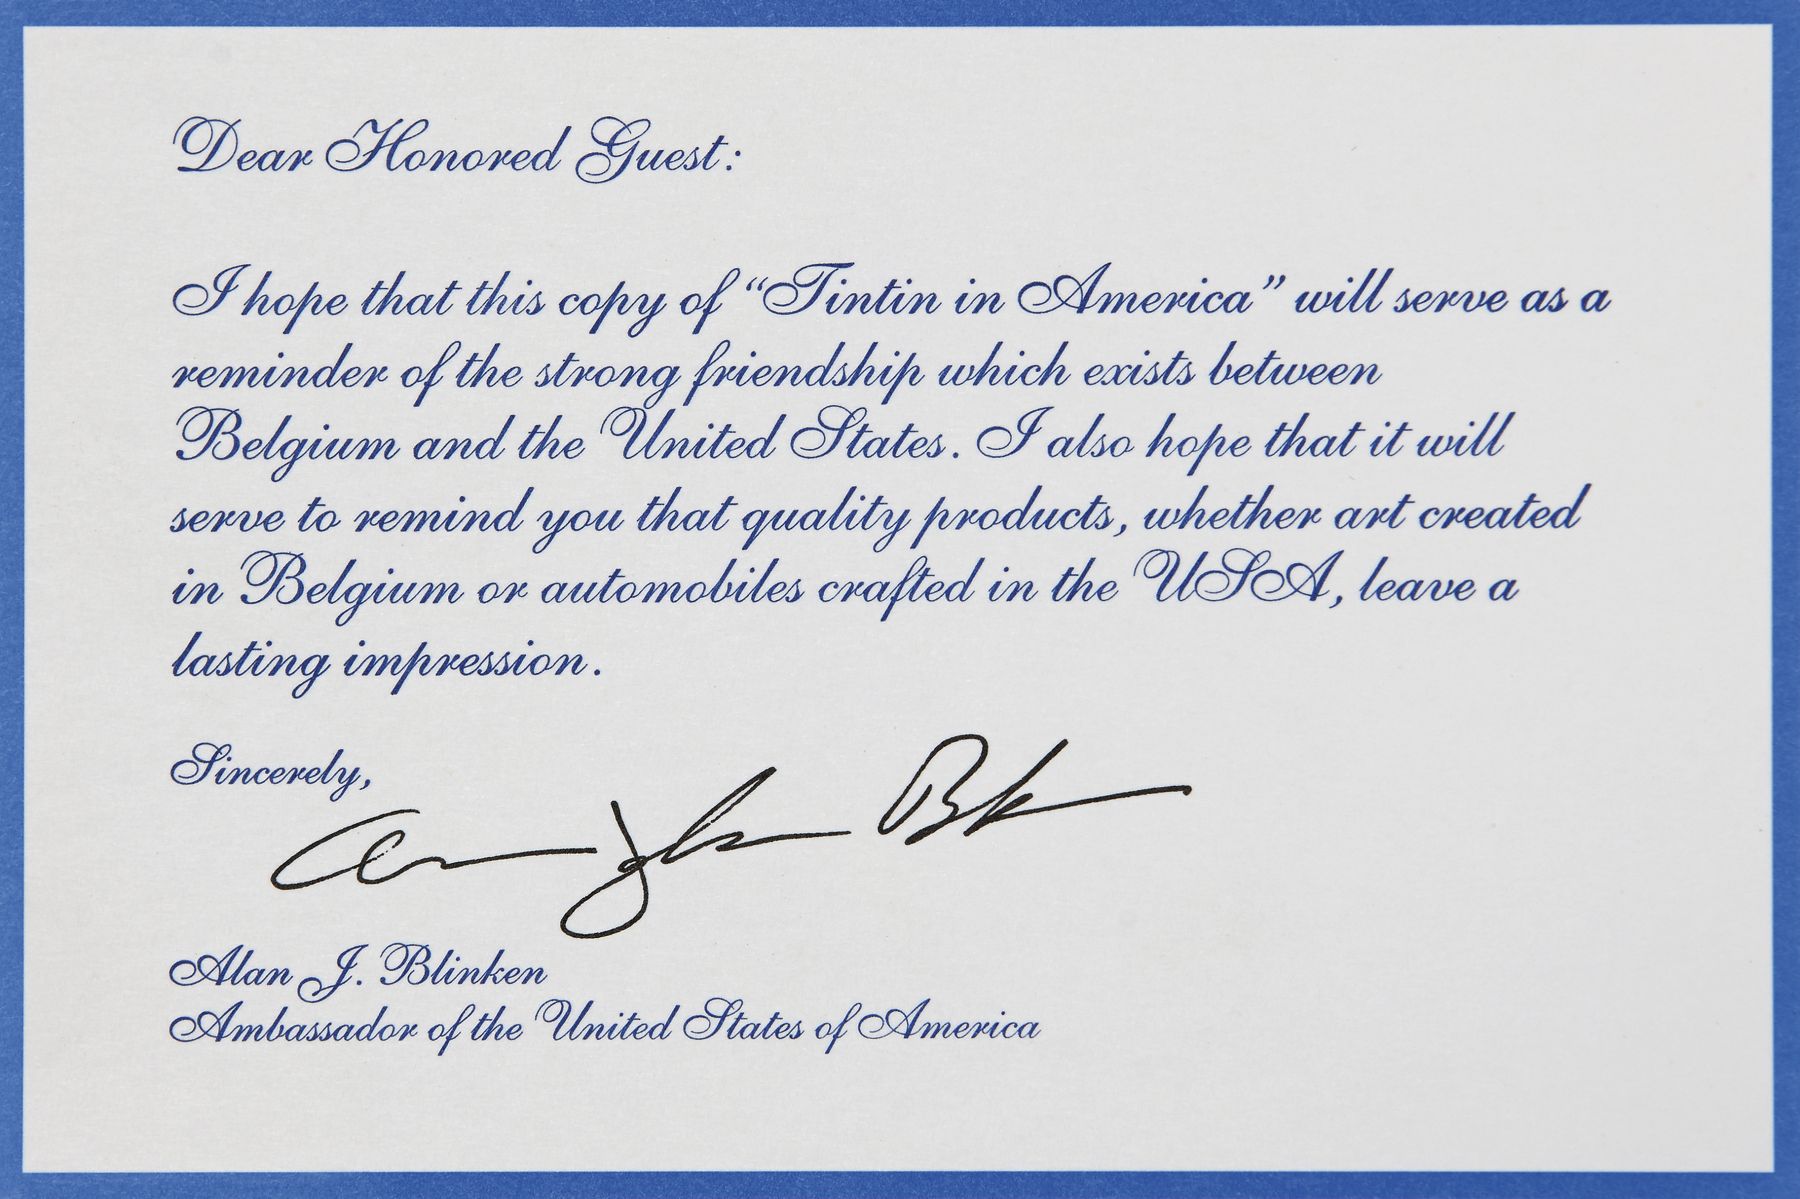 Dear Honored Guest:
I hope that this copy of “Tintin in America” will serve as a
reminder of the strong friendship which exists between
Belgium and the United States. I also hope that it will
serve to remind you that quality products, whether art created
in Belgium or automobiles crafted in the USA, leave a
lasting impression.
Sincerely,
Alan J. Blinken
Ambassador of the United States of America